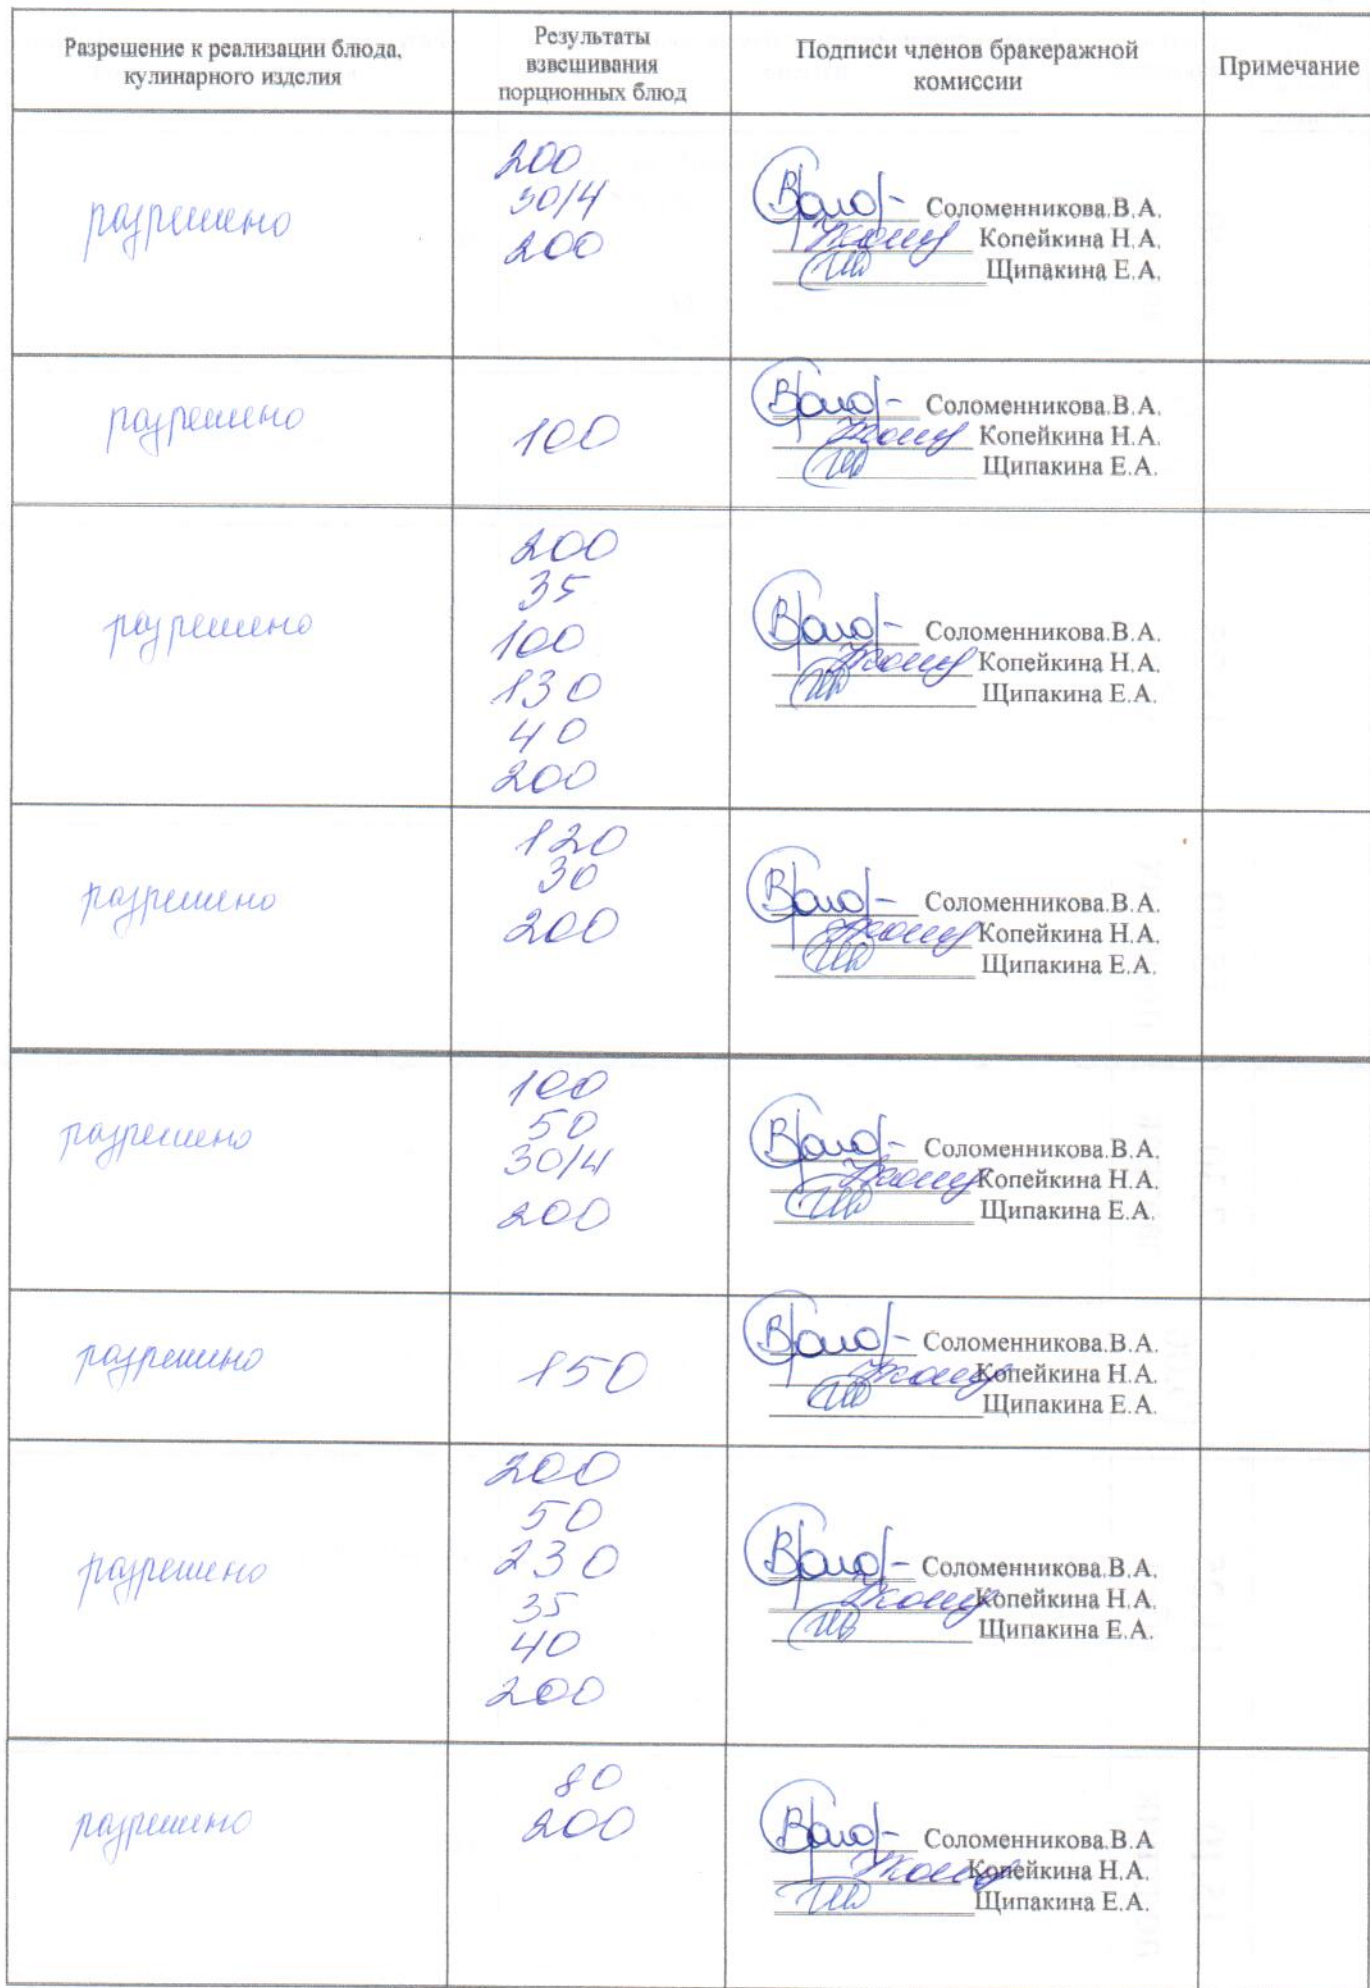 Разрешение к реализации блюда,
кулинарного изделия
Результаты
взвешивания
порционных блюд
Подписи членов бракеражной
комиссии
Примечание
разрешено
200
30/4
200
Соломенникова.В.А.
Копейкина Н.А.
Щипакина Е.А.
разрешено
100
Соломенникова.В.А.
Копейкина Н.А.
Щипакина Е.А.
разрешено
200
35
100
130
40
200
Соломенникова.В.А.
Копейкина Н.А.
Щипакина Е.А.
разрешено
120
30
200
Соломенникова.В.А.
Копейкина Н.А.
Щипакина Е.А.
разрешено
100
50
30/4
200
Соломенникова.В.А.
Копейкина Н.А.
Щипакина Е.А.
разрешено
150
Соломенникова.В.А.
Копейкина Н.А.
Щипакина Е.А.
разрешено
200
50
230
35
40
200
Соломенникова.В.А.
Копейкина Н.А.
Щипакина Е.А.
разрешено
80
200
Соломенникова.В.А
Копейкина Н.А.
Щипакина Е.А.